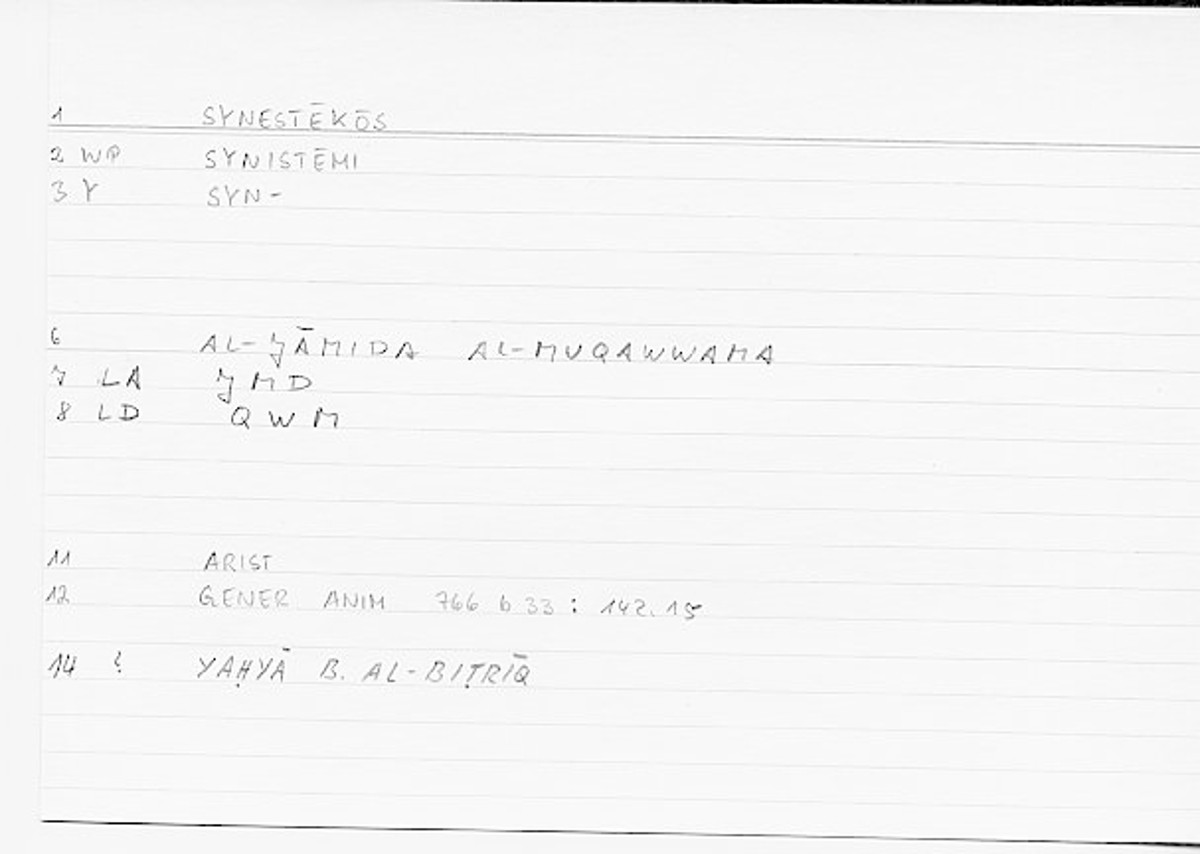 1 SYNESTĒKŌS
2 WP SYNISTĒMI
3 Y SYN-
6 AL-ǦĀMIDA AL-MUQAWWAMA
7 LA ǦMD
8 LD QWM
11 ARIST
12 GENER ANIM 766 b 33 : 142.15
14 ? YAḤYĀ B. AL-BIṬRĪQ